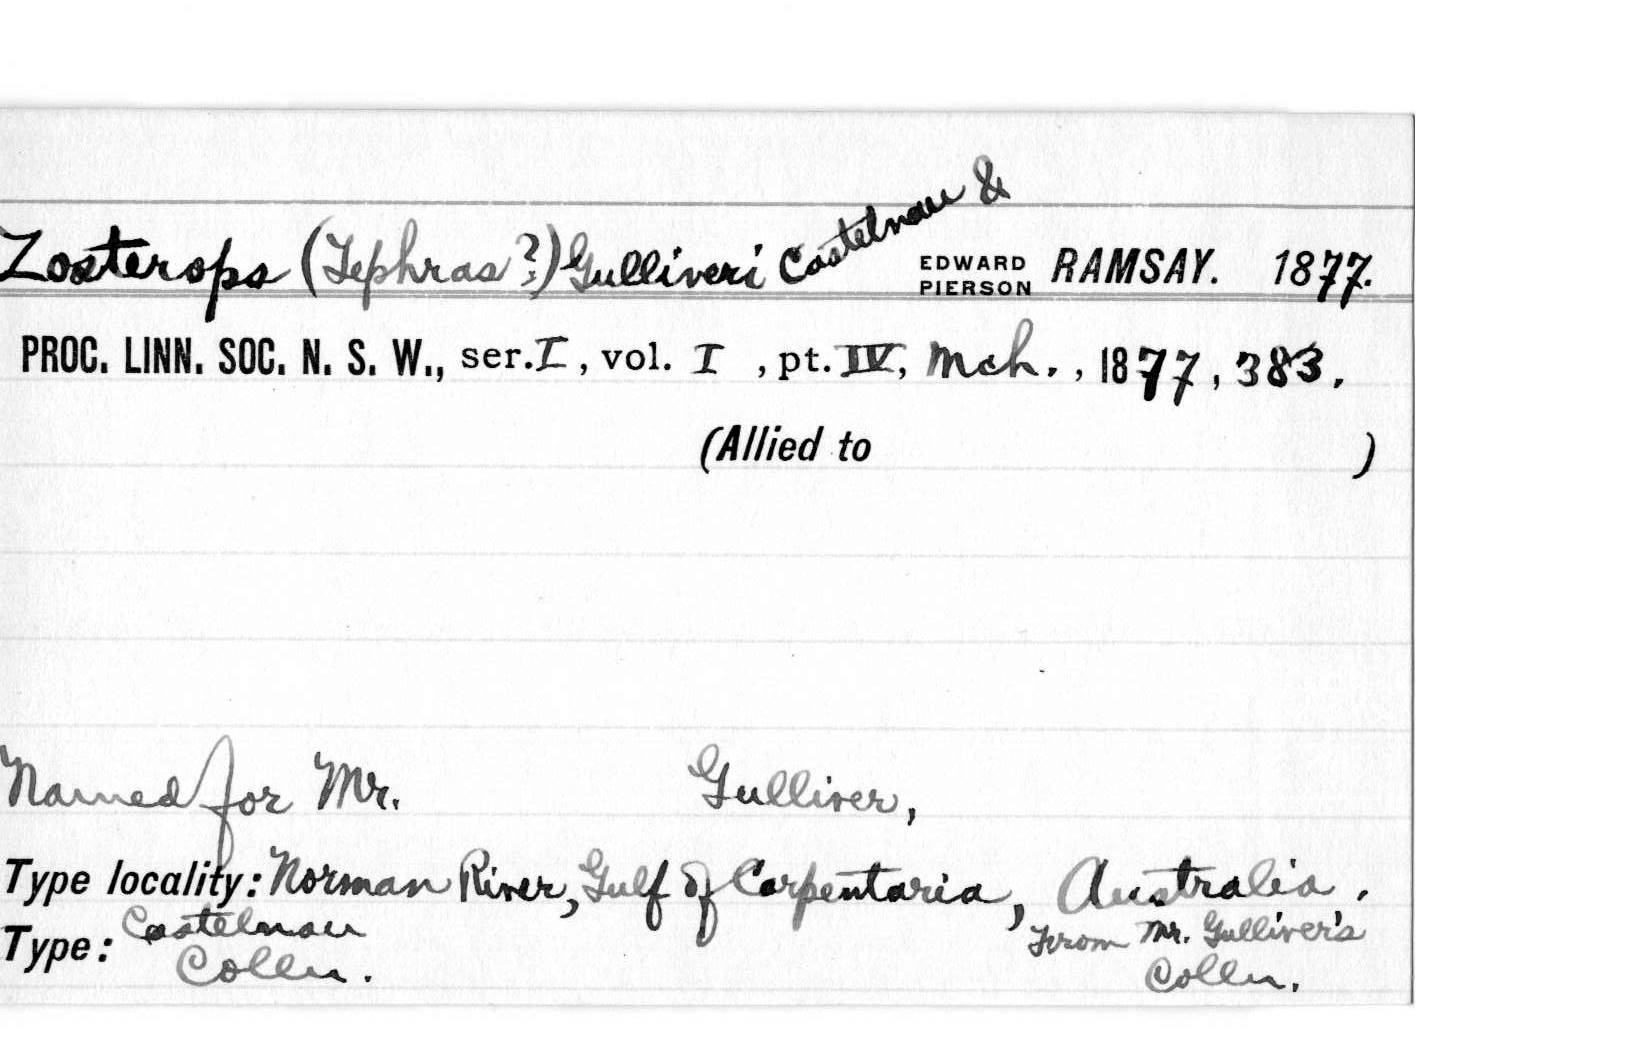 Zosterops (Tephras?) Gulliveri Castelnau & EDWARD PIERSON RAMSAY. 1877.
PROC. LINN. SOC. N. S. W., ser. I, vol. I, pt. IV, Mch., 1877, 383.
(Allied to )
Named for Mr. Gulliver,
Type locality: Norman River, Gulf of Carpentaria, Australia.
Type: Castelnau Colln. From Mr. Gulliver's Colln.